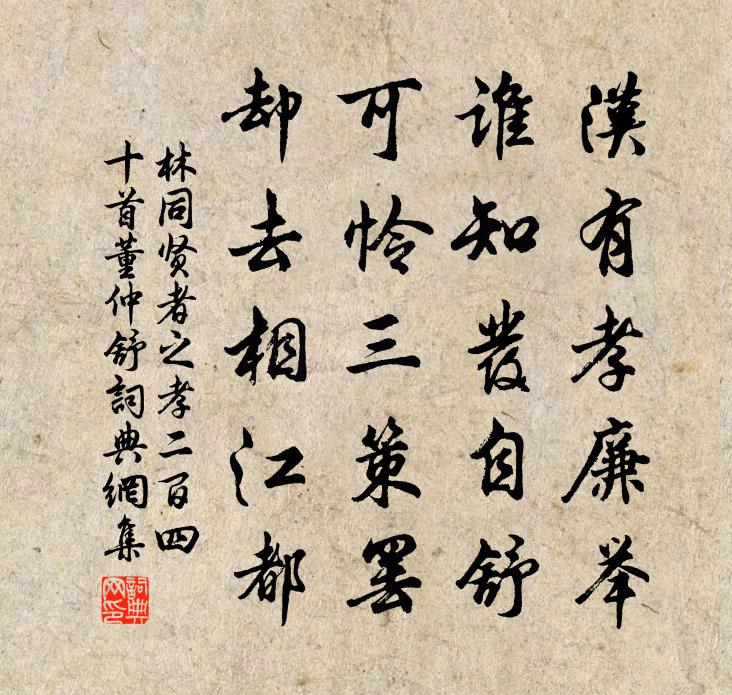 漢有孝廉举
誰知發自舒
可怜三策罢
却去相江都
林同贤者之孝二百四
十首董仲舒詞典網集
詞典
网印